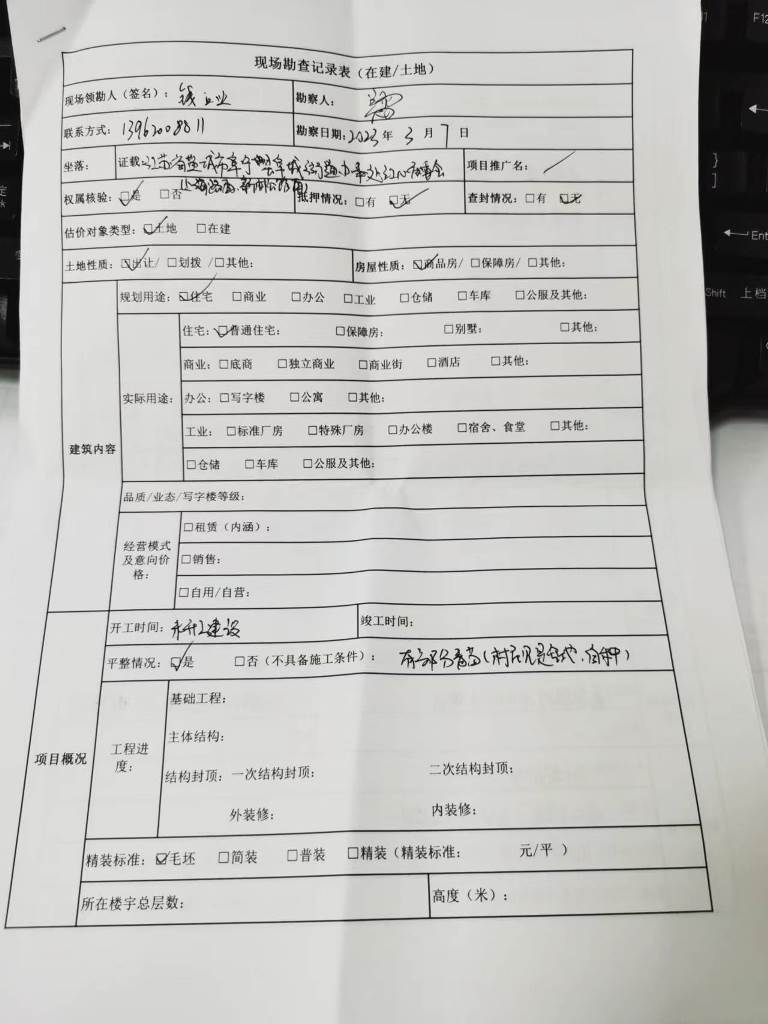 现场勘查记录表（在建/土地）
现场领勘人（签名）： 勘察人：
联系方式：13962008811 勘察日期：2023年 3 月 7 日
坐落： 证载：江苏省盐城市阜宁县阜城街道办事处江心居委会 项目推广名：
权属核验：☑是 □否 抵押情况：□有 ☑无 查封情况：□有 ☑无
估价对象类型：☑土地 □在建
土地性质：☑出让/ □划拨 /□其他： 房屋性质：☑商品房/ □保障房/ □其他：
建筑内容
规划用途：☑住宅 □商业 □办公 □工业 □仓储 □车库 □公服及其他：
实际用途：
住宅：☑普通住宅： □保障房： □别墅： □其他：
商业：□底商 □独立商业 □商业街 □酒店 □其他：
办公：□写字楼 □公寓 □其他：
工业：□标准厂房 □特殊厂房 □办公楼 □宿舍、食堂 □其他：
□仓储 □车库 □公服及其他：
品质/业态/写字楼等级：
经营模式
及意向价
格：
□租赁（内涵）：
□销售：
□自用/自营：
项目概况
开工时间：未开工建设 竣工时间：
平整情况：☑是 □否（不具备施工条件）： 有部分青苗（
工程进
度：
基础工程：
主体结构：
结构封顶：一次结构封顶： 二次结构封顶：
外装修： 内装修：
精装标准：☑毛坯 □简装 □普装 □精装（精装标准： 元/平 ）
所在楼宇总层数： 高度（米）：
F12
Ent
Shift 上档